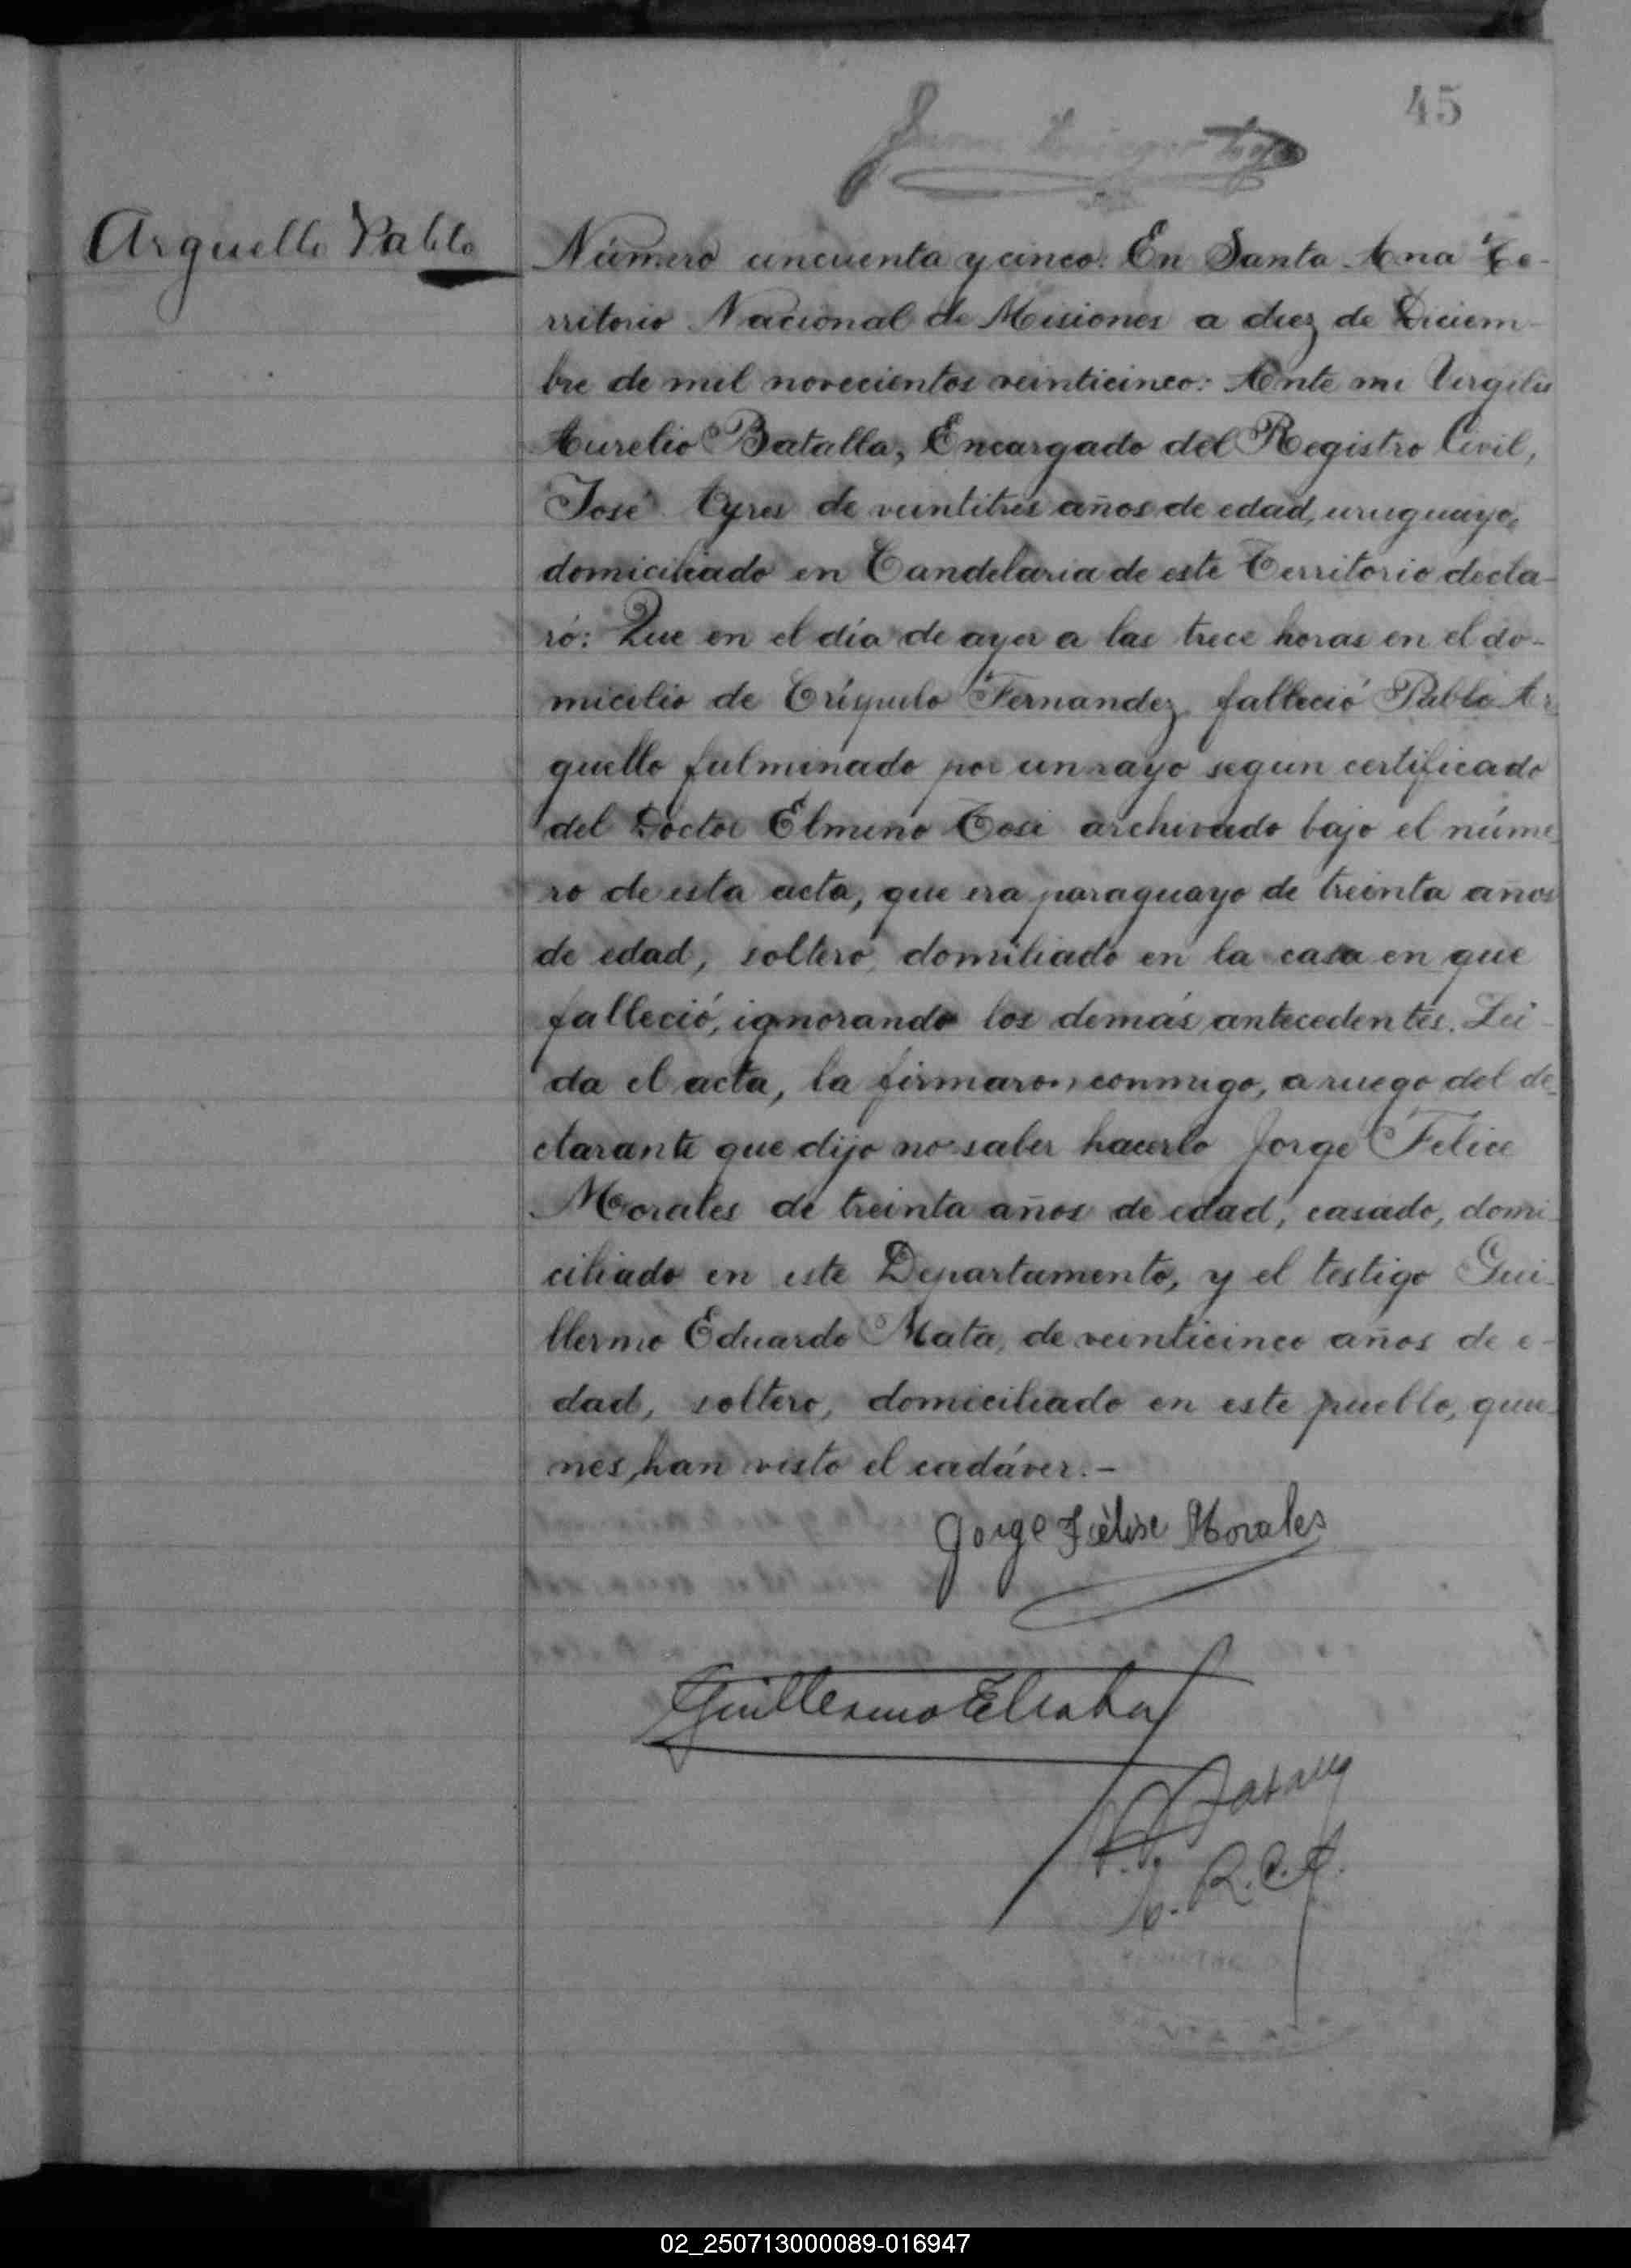 45
Arguello Pablo
Número cincuenta y cinco: En Santa Ana Te-
rritorio Nacional de Misiones a diez de Diciem-
bre de mil novecientos veinticinco: Ante mi Virgilio
Aurelio Batalla, Encargado del Registro Civil,
José Ayres de veintitres años de edad, uruguayo,
domiciliado en Candelaria de este Territorio decla-
ró: Que en el día de ayer a las trece horas en el do-
micilio de Críspulo Fernandez falleció Pablo Ar
guello fulminado por un rayo segun certificado
del Doctor Elmino Tosi archivado bajo el núme
ro de esta acta, que era paraguayo de treinta años
de edad, soltero, domiliado en la casa en que
falleció, ignorando los demás antecedentes. Lei-
da el acta, la firmaron conmigo, a ruego del de-
clarante que dijo no saber hacerlo Jorge Felice
Morales de treinta años de edad, casado, domi-
ciliado en este Departamento, y el testigo Gui-
llermo Eduardo Mata, de veinticinco años de e-
dad, soltero, domiciliado en este pueblo, quie-
nes han visto el cadáver.-
Jorge Félise Morales
Guillermo E Mata
R.C.
02_250713000089-016947